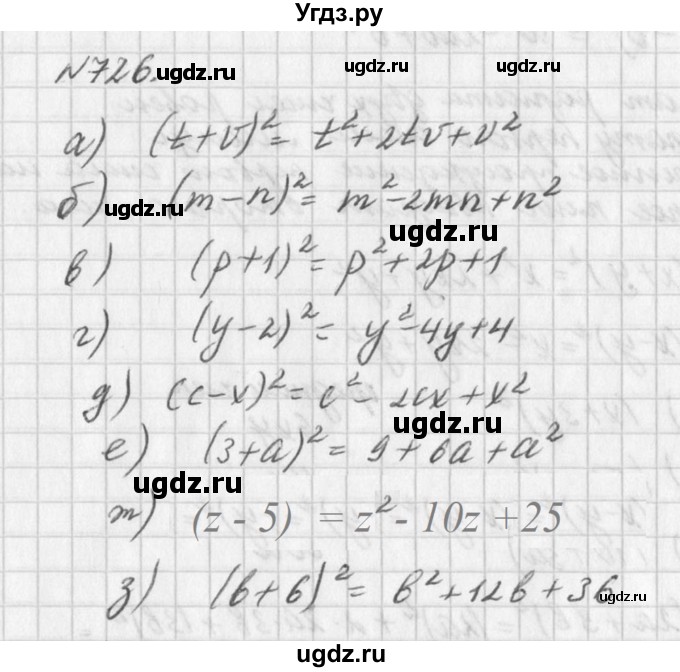 Угдз.ру
№726.
ugdz.ru ugdz.ru ugdz.ru
а) (t+v)² = t²+2tv+v²
б) (m-n)² = m²-2mn+n²
ugdz.ru
ugdz.ru
в) (p+1)² = p²+2p+1
г) (y-2)² = y²-4y+4
д) (c-x)² = c²-2cx+x²
ugdz.ru
е) (3+a)² = 9+6a+a²
ugdz.ru
ж) (z - 5) = z² - 10z +25
з) (b+6)² = b²+12b+36
ugdz.ru
ugdz.ru